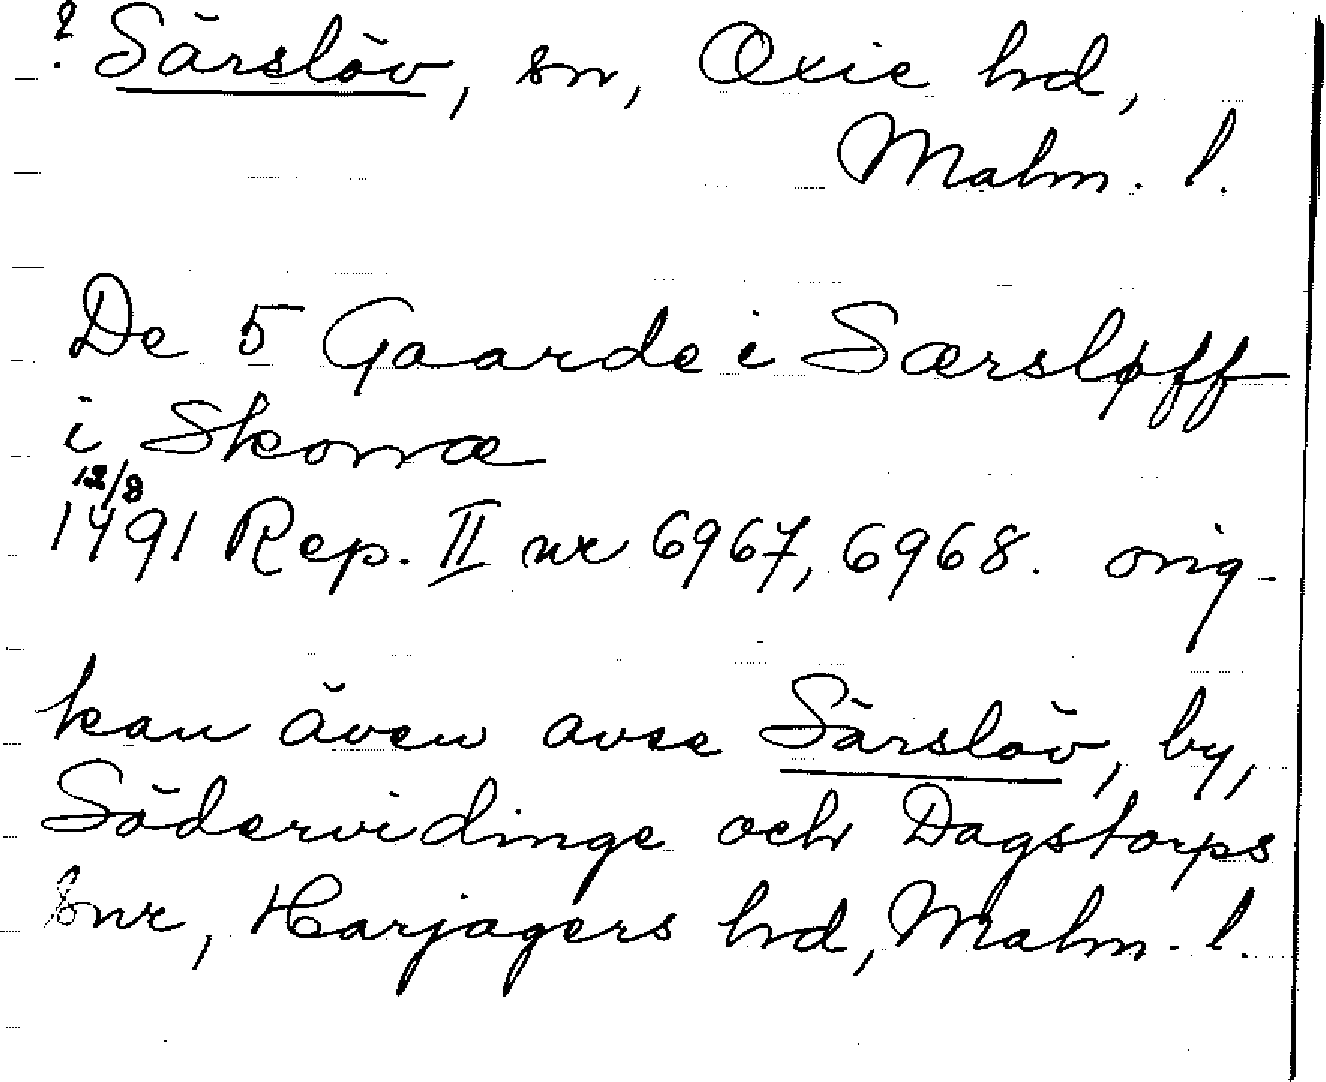 ? Särslöv, sn, Oxie hd,
Malm. l.
De 5 Gaarde i Særsløff
i Skonæ
12/8
1491 Rep. II nr 6967, 6968. orig.
kan även avse Särslöv, by,
Södervidinge och Dagstorps
snr, Harjagers hd, Malm. l.